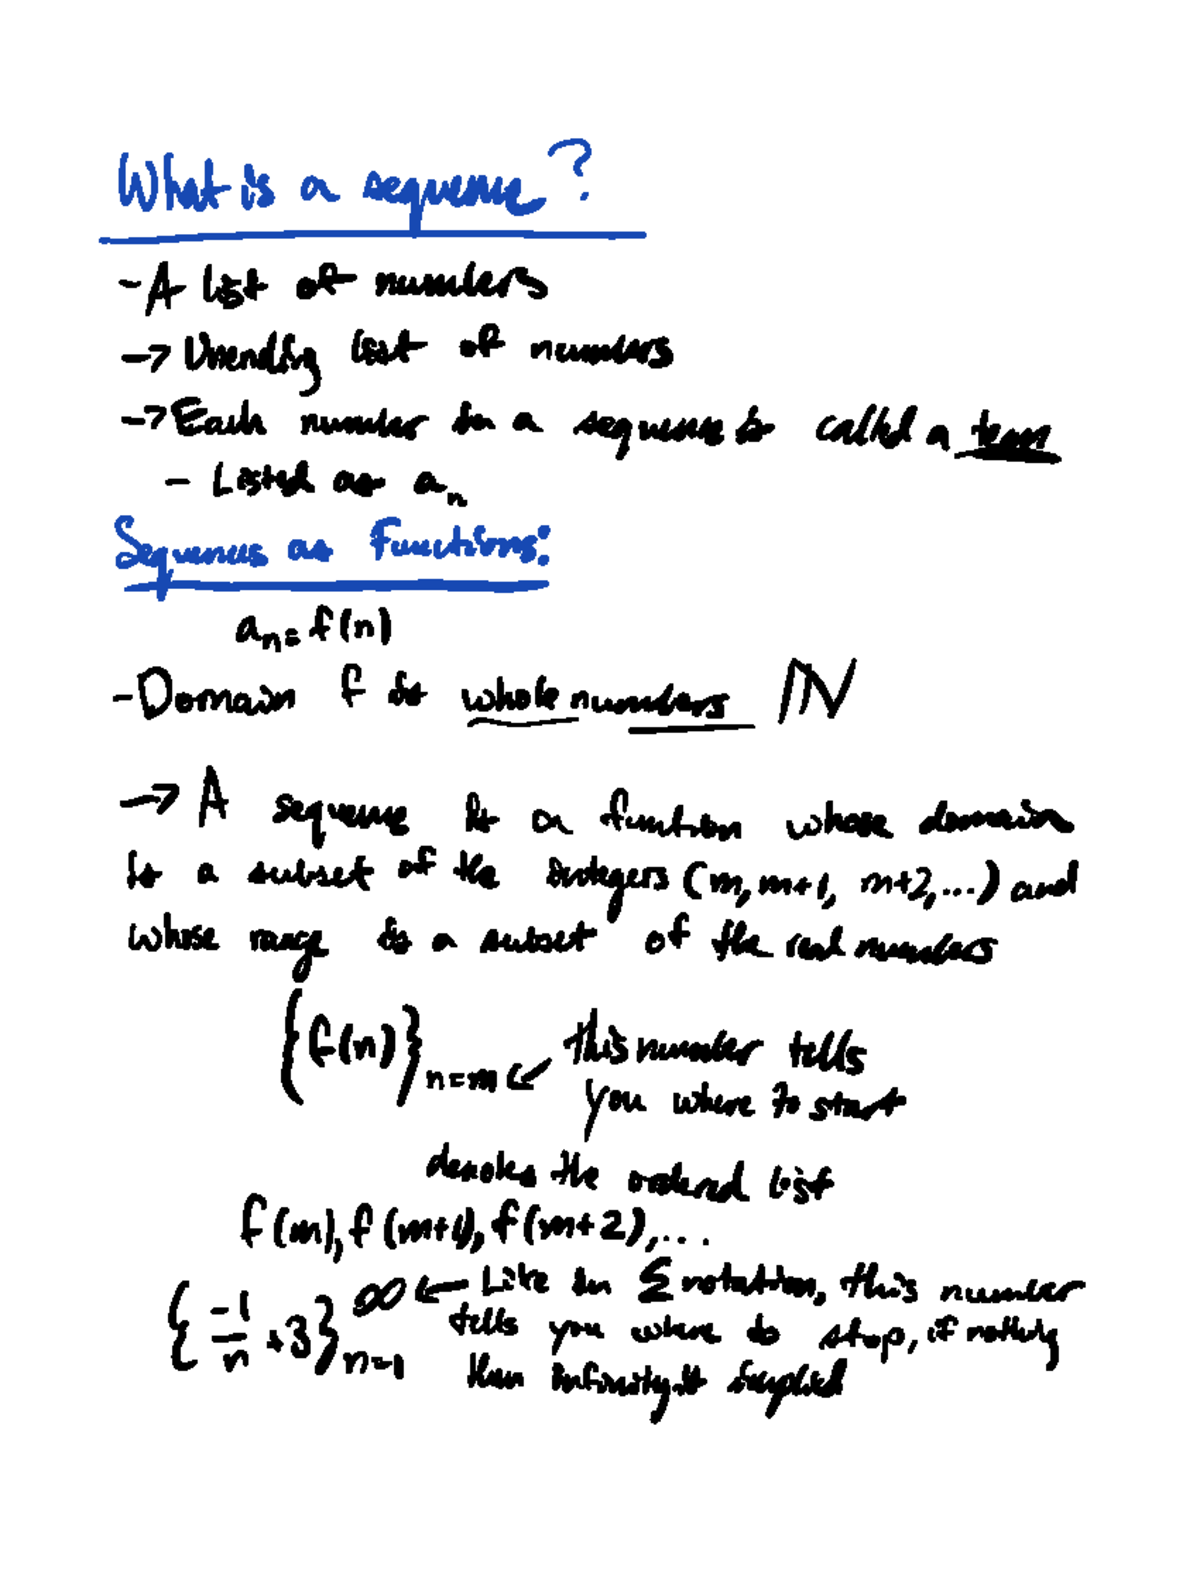 What is a sequence?
- A list of numbers
→ Unending list of numbers
→ Each number in a sequence is called a term
- Listed as aₙ
Sequences as Functions:
aₙ = f(n)
- Domain f is whole numbers ℕ
→ A sequence is a function whose domain
is a subset of the integers (m, m+1, m+2, ...) and
whose range is a subset of the real numbers
{f(n)}ₙ₌ₘ ← This number tells
you where to start
denotes the ordered list
f(m), f(m+1), f(m+2), ...
{-1/n + 3}ₙ₌₁^∞ ← Like in Σ notation, this number
tells you where to stop, if nothing
then infinity is implied